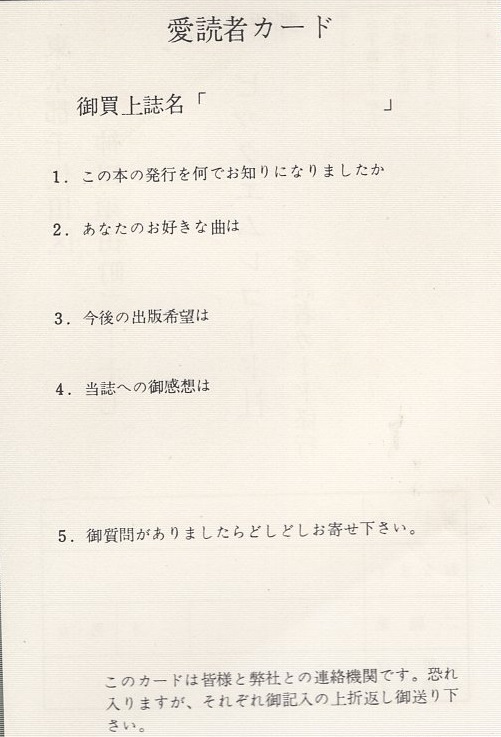 愛読者カード
御買上誌名「 」
1. この本の発行を何でお知りになりましたか
2. あなたのお好きな曲は
3. 今後の出版希望は
4. 当誌への御感想は
5. 御質問がありましたらどしどしお寄せ下さい。
このカードは皆様と弊社との連絡機関です。恐れ
入りますが、それぞれ御記入の上折返し御送り下
さい。